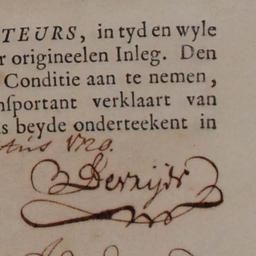 TEURS, in tyd en wyle
r origineelen Inleg. Den
Conditie aan te nemen,
nſportant verklaart van
s beyde onderteekent in
tus 1720.